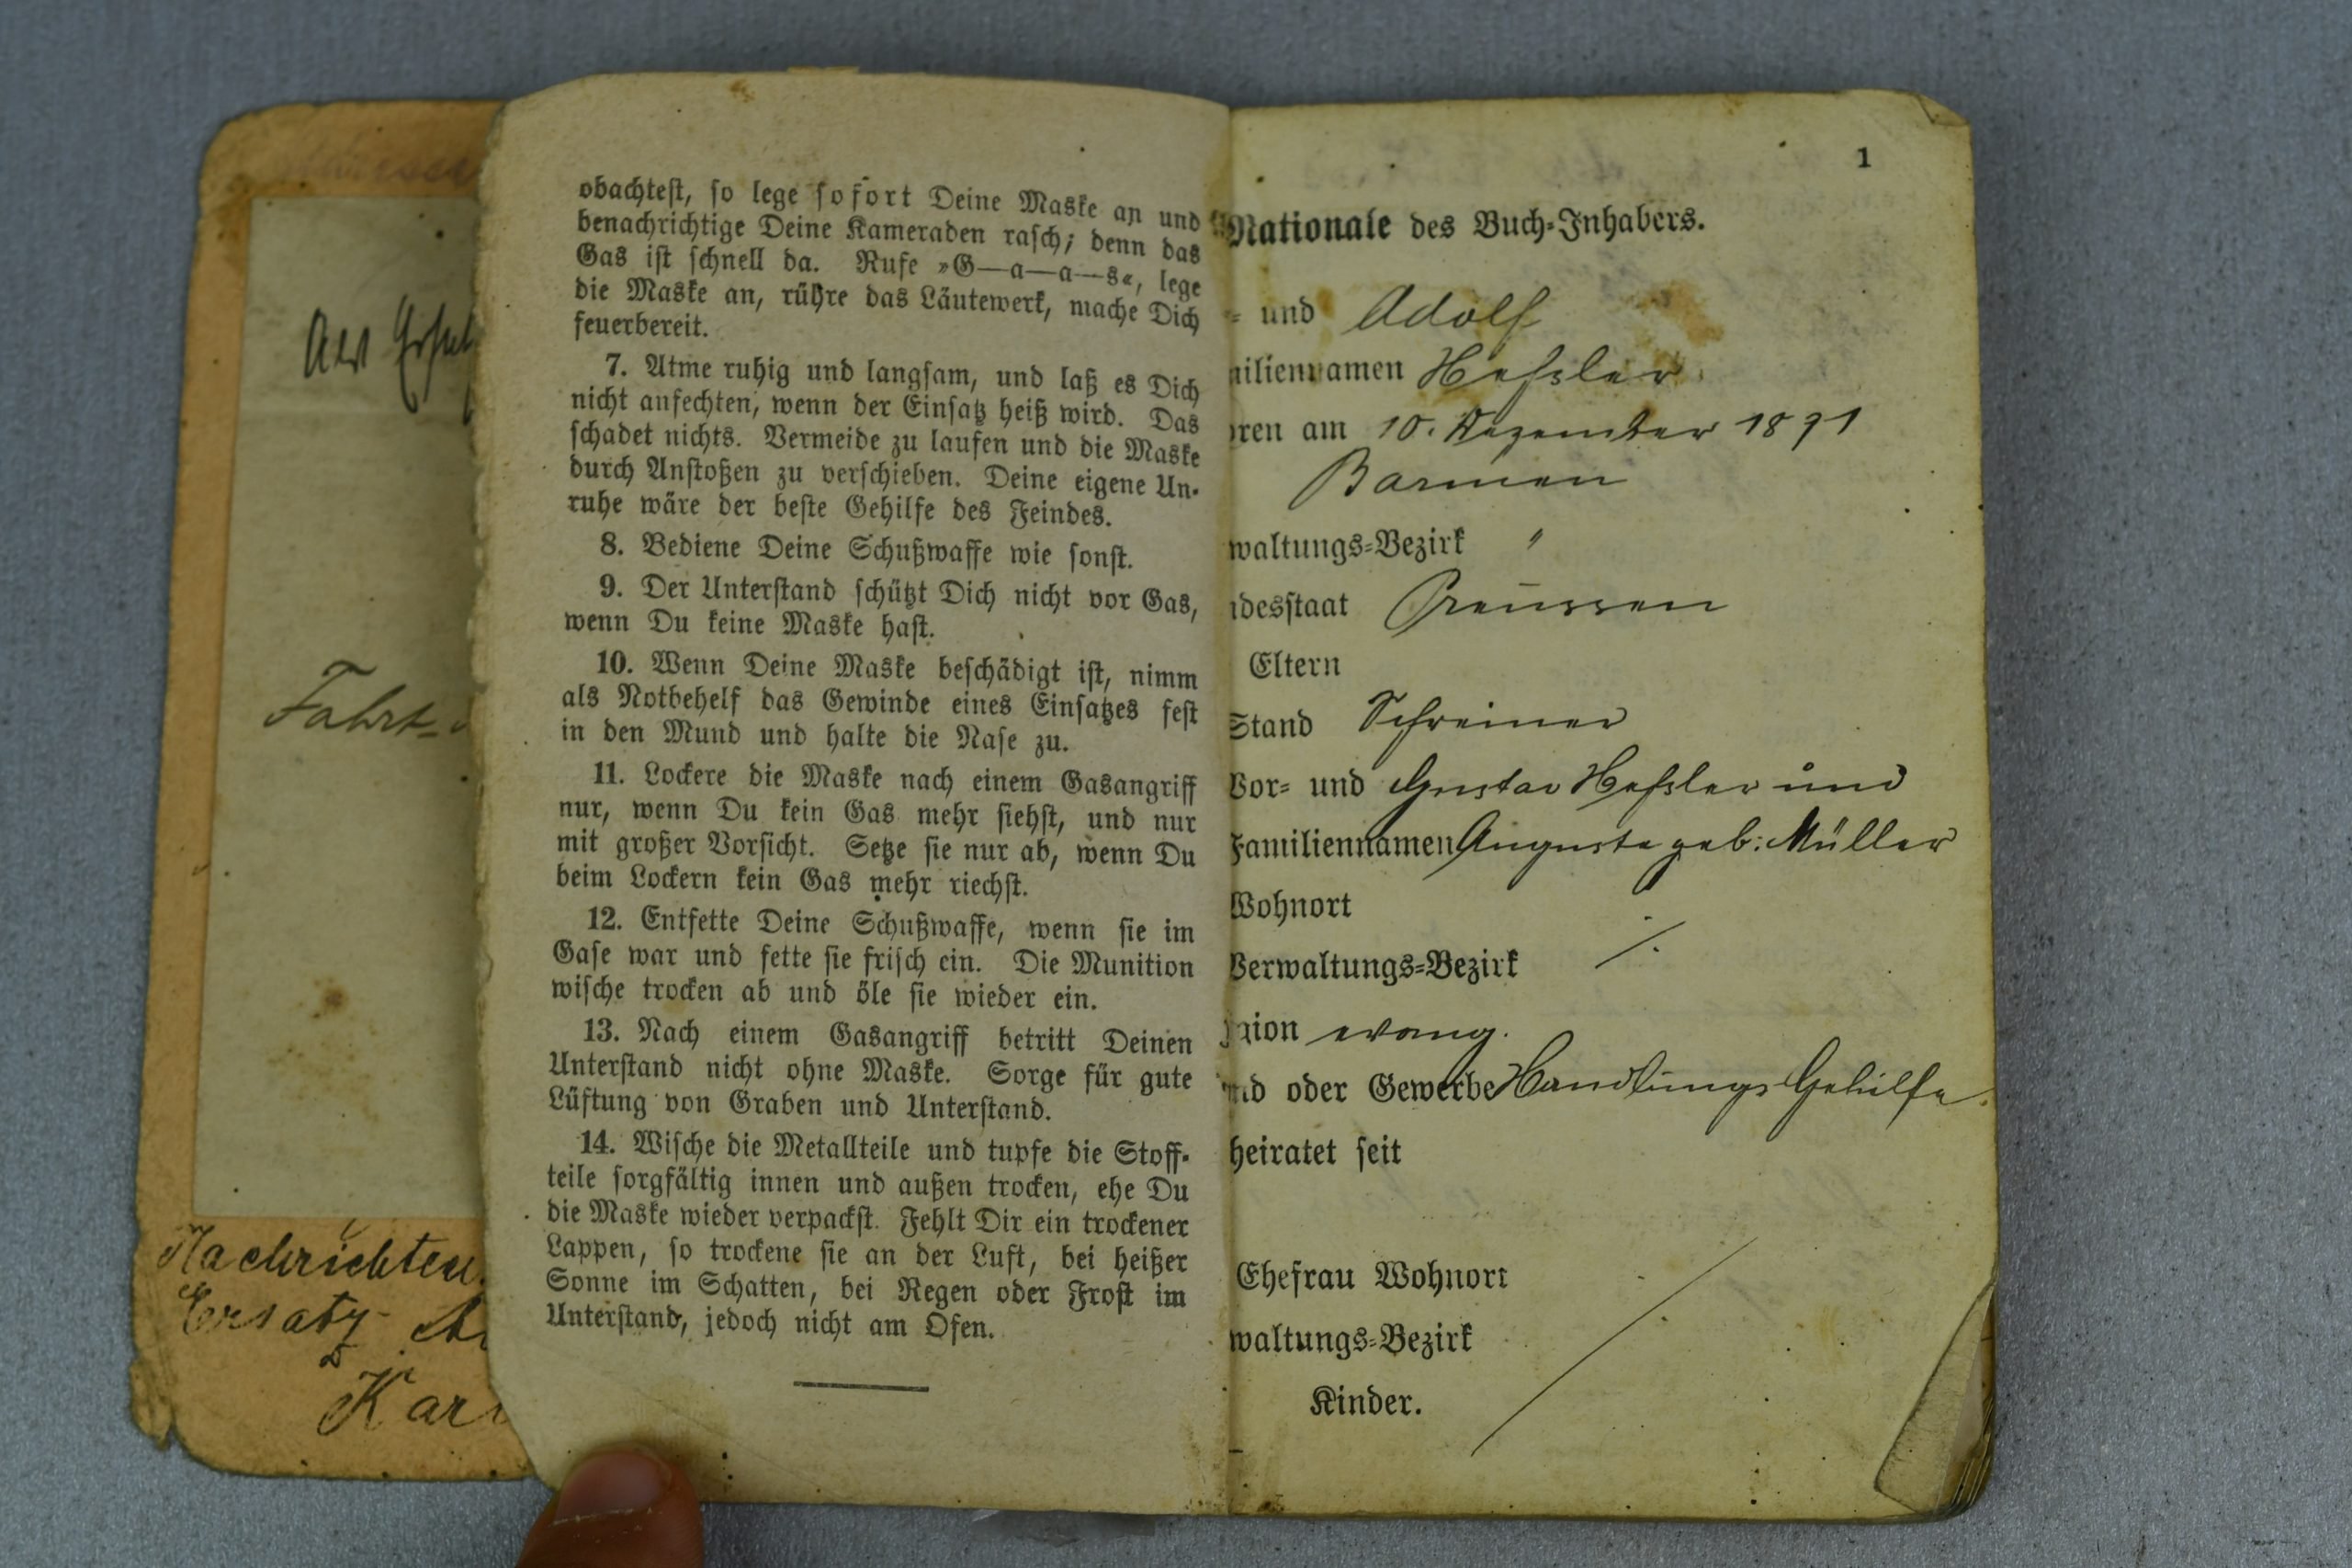 Fahrt-
Nachrichten
Ersatz
obachtest, so lege sofort Deine Maske an und
benachrichtige Deine Kameraden rasch; denn das
Gas ist schnell da. Rufe »G—a—a—s«, lege
die Maske an, rühre das Läutewerk, mache Dich
feuerbereit.
7. Atme ruhig und langsam, und laß es Dich
nicht anfechten, wenn der Einsatz heiß wird. Das
schadet nichts. Vermeide zu laufen und die Maske
durch Anstoßen zu verschieben. Deine eigene Un-
ruhe wäre der beste Gehilfe des Feindes.
8. Bediene Deine Schußwaffe wie sonst.
9. Der Unterstand schützt Dich nicht vor Gas,
wenn Du keine Maske hast.
10. Wenn Deine Maske beschädigt ist, nimm
als Notbehelf das Gewinde eines Einsatzes fest
in den Mund und halte die Nase zu.
11. Lockere die Maske nach einem Gasangriff
nur, wenn Du kein Gas mehr siehst, und nur
mit großer Vorsicht. Setze sie nur ab, wenn Du
beim Lockern kein Gas mehr riechst.
12. Entfette Deine Schußwaffe, wenn sie im
Gase war und fette sie frisch ein. Die Munition
wische trocken ab und öle sie wieder ein.
13. Nach einem Gasangriff betritt Deinen
Unterstand nicht ohne Maske. Sorge für gute
Lüftung von Graben und Unterstand.
14. Wische die Metallteile und tupfe die Stoff-
teile sorgfältig innen und außen trocken, ehe Du
die Maske wieder verpackst. Fehlt Dir ein trockener
Lappen, so trockene sie an der Luft, bei heißer
Sonne im Schatten, bei Regen oder Frost im
Unterstand, jedoch nicht am Ofen.
1
Nationale des Buch-Inhabers.
- und Adolf
miliennamen Heßler
oren am 10. Dezember 1891
Barmen
waltungs-Bezirk "
desstaat Preussen
Eltern
Stand Schreiner
Vor- und Gustav Heßler und
Familiennamen Auguste geb: Müller
Wohnort
Verwaltungs-Bezirk ./.
gion evang.
nd oder Gewerbe Handlungs Gehilfe.
heiratet seit
Ehefrau Wohnort
waltungs-Bezirk
Kinder.